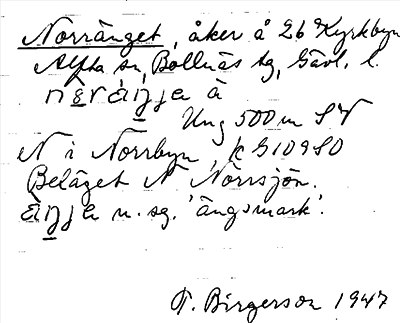 Norränget, åker å 26 Kyrkbyn
Alfta sn, Bollnäs tg, Gävl. l.
à
Ung 500 m SV
N i Norrbyn, k
Beläget N Norrsjön.
n. sg. 'ängsmark'.
T. Birgerson 1947